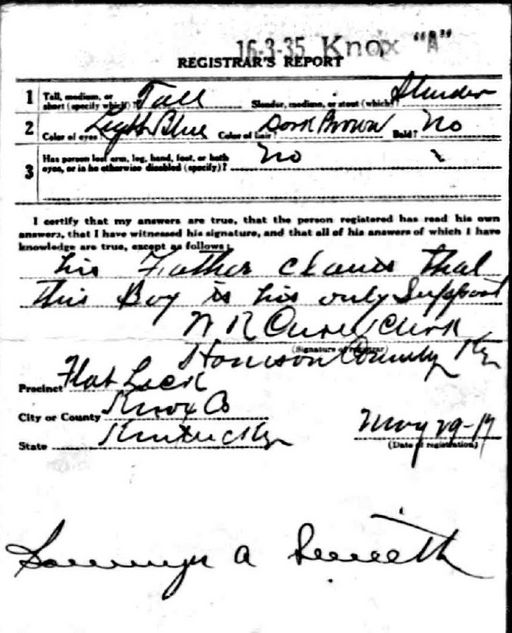 16-3-35 Knox "A"
REGISTRAR'S REPORT
1 Tall, medium, or short (specify which)? Tall Slender, medium, or stout (which)? Slender
2 Color of eyes? Light Blue Color of hair? Dark Brown Bald? No
3 Has person lost arm, leg, hand, foot, or both eyes, or is he otherwise disabled (specify)? No
I certify that my answers are true, that the person registered has read his own
answers, that I have witnessed his signature, and that all of his answers of which I have
knowledge are true, except as follows:
his Father claims that
this Boy is his only Support
W R Clerk
(Signature of registrar)
Harrison County Ky
Precinct Flat Lick
City or County Knox Co
State Kentucky
May 29-17
(Date of registration)
A